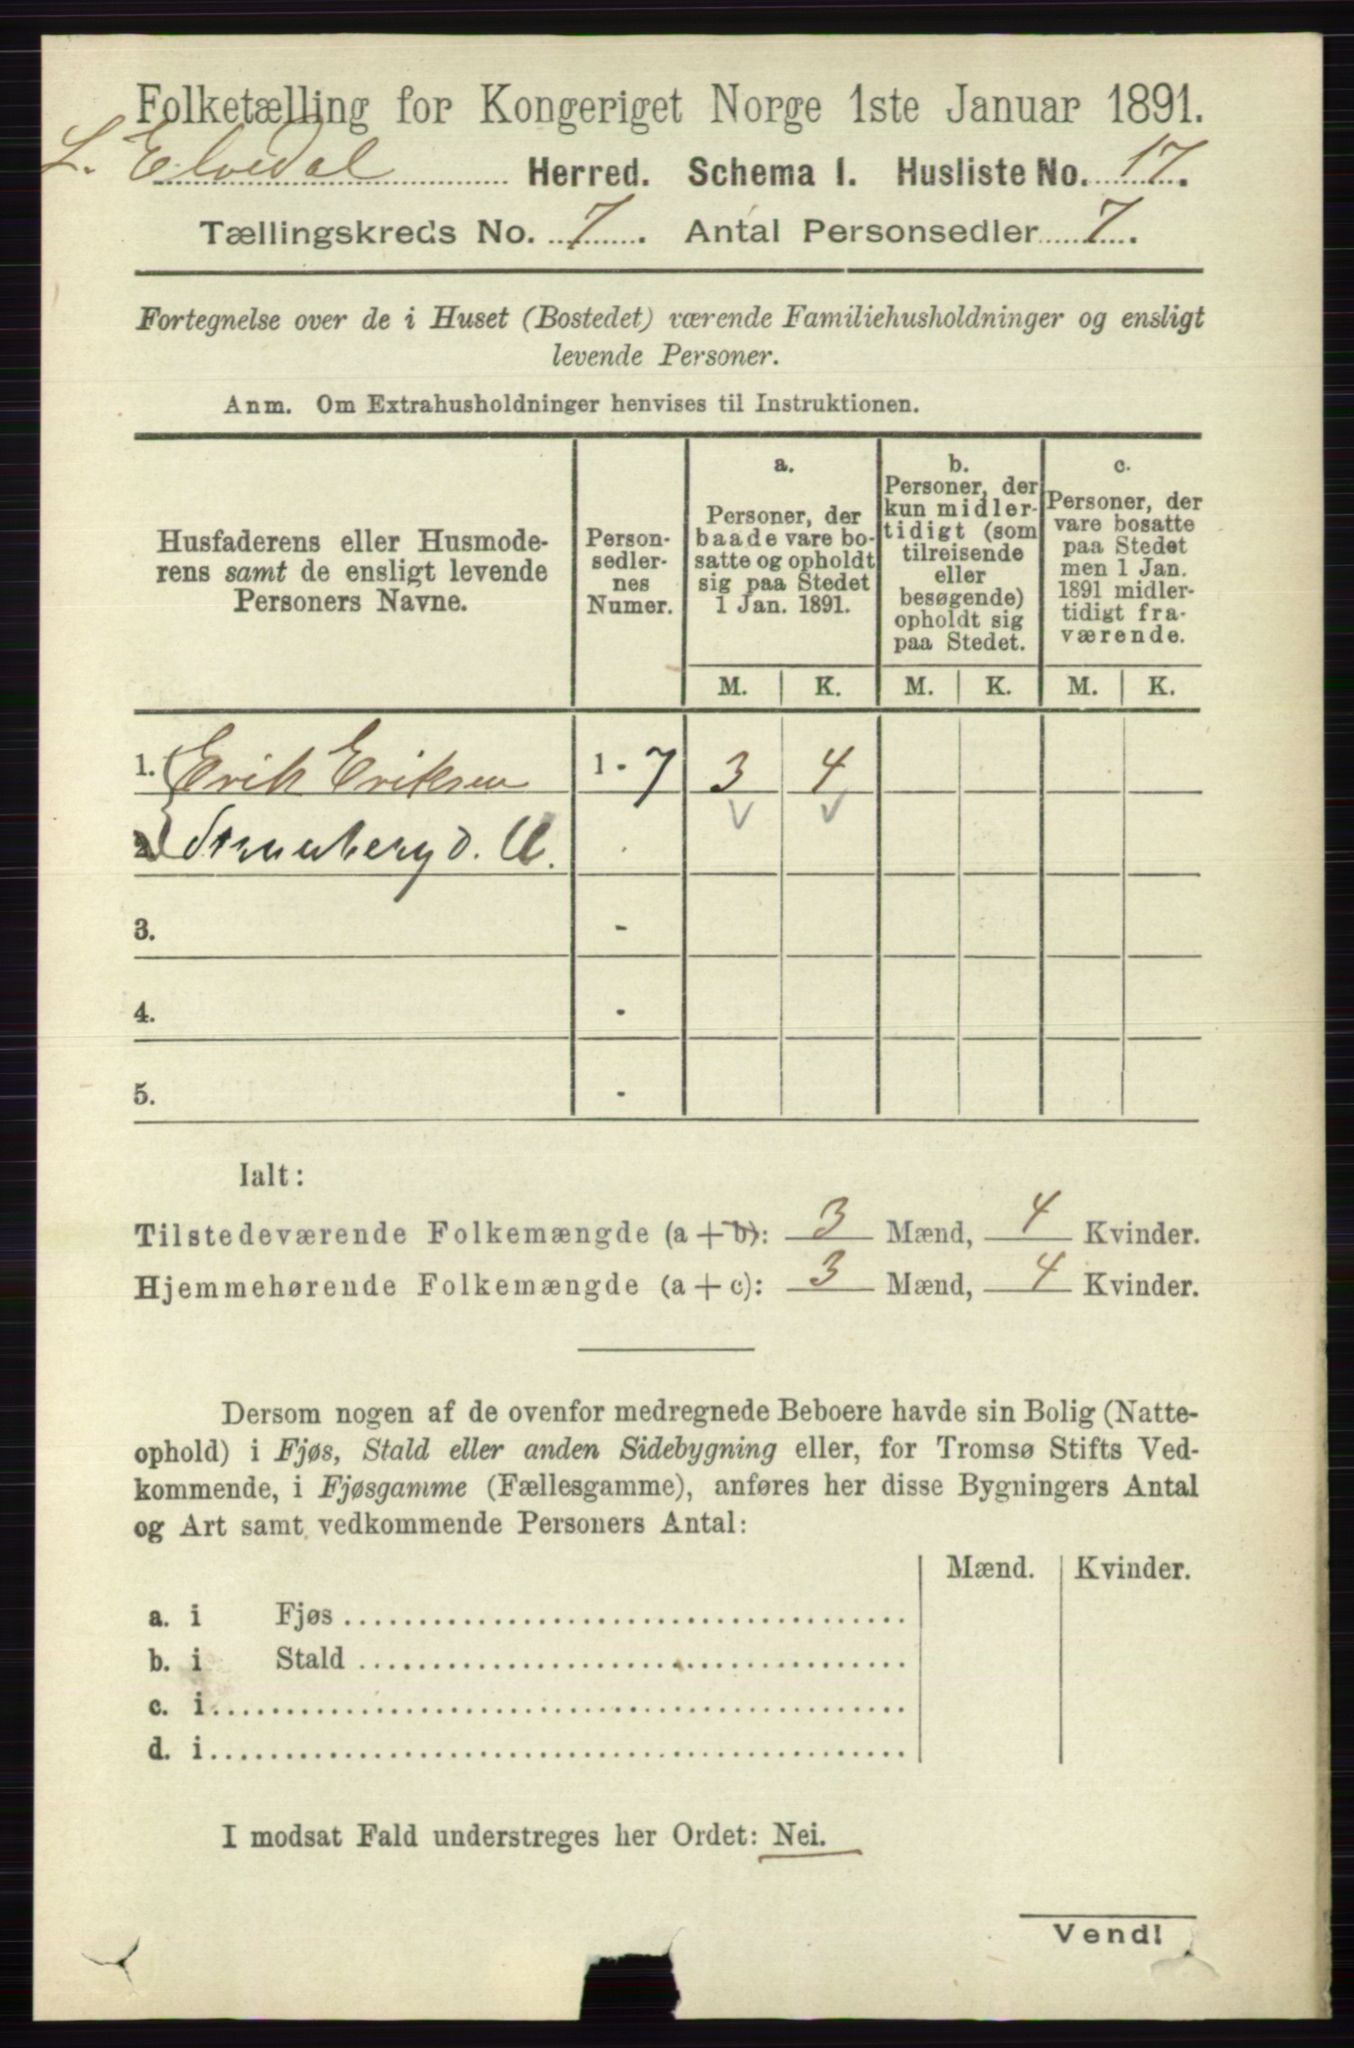 Folketælling for Kongeriget Norge 1ste Januar 1891.
L. Elvedal Herred. Schema I. Husliste No. 17.
Tællingskreds No. 7. Antal Personsedler 7.
Fortegnelse over de i Huset (Bostedet) værende Familiehusholdninger og ensligt
levende Personer.
Anm. Om Extrahusholdninger henvises til Instruktionen.
Husfaderens eller Husmode-
rens samt de ensligt levende
Personers Navne.
Person-
sedler-
nes
Numer.
a.
Personer, der
baade vare bo-
satte og opholdt
sig paa Stedet
1 Jan. 1891.
b.
Personer, der
kun midler-
tidigt (som
tilreisende
eller
besøgende)
opholdt sig
paa Stedet.
c.
Personer, der
vare bosatte
paa Stedet
men 1 Jan.
1891 midler-
tidigt fra-
værende.
M. K. M. K. M. K.
1. Erik Eriksen 1 - 7 3 4
2.
3. -
4. -
5. -
Ialt:
Tilstedeværende Folkemængde (a + b): 3 Mænd, 4 Kvinder.
Hjemmehørende Folkemængde (a + c): 3 Mænd, 4 Kvinder.
Dersom nogen af de ovenfor medregnede Beboere havde sin Bolig (Natte-
ophold) i Fjøs, Stald eller anden Sidebygning eller, for Tromsø Stifts Ved-
kommende, i Fjøsgamme (Fællesgamme), anføres her disse Bygningers Antal
og Art samt vedkommende Personers Antal:
Mænd. Kvinder.
a. i Fjøs
b. i Stald
c. i
d. i
I modsat Fald understreges her Ordet: Nei.
Vend!